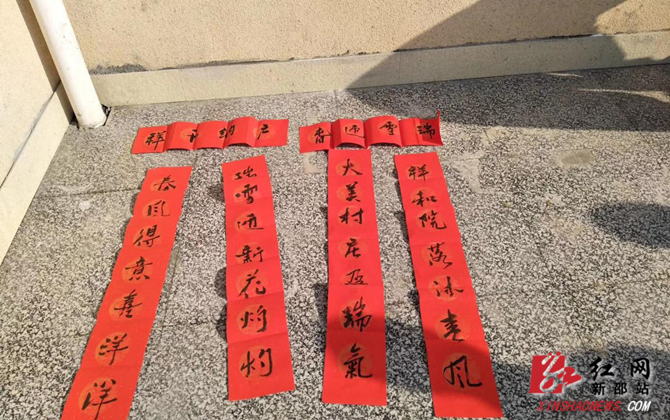 瑞雪迎春
祥和院落沐春风
大美村庄瑞气
户纳千祥
瑞雪迎新花灼灼
春风得意喜洋洋
红网
新邵站
XINSHAONEWS.COM